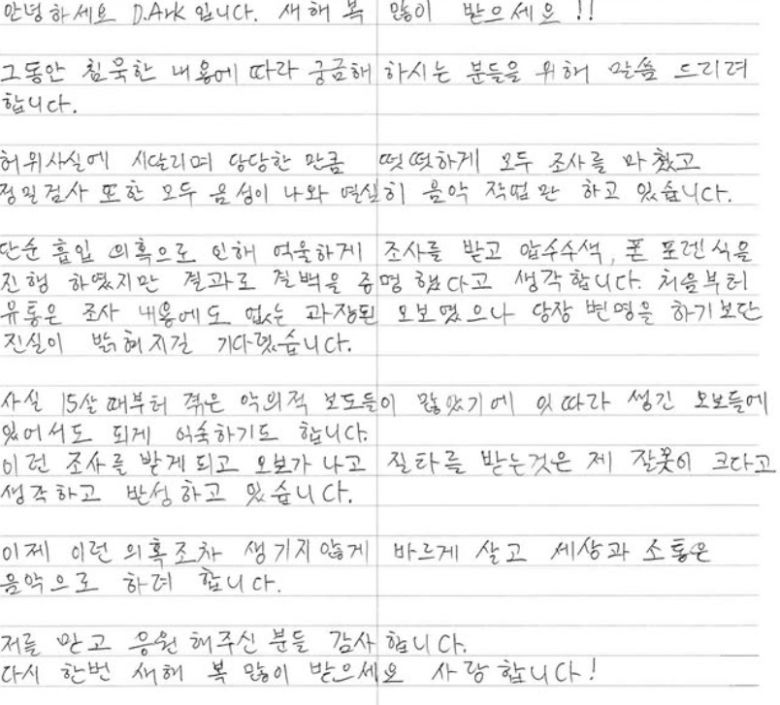 안녕하세요 D.Ark 입니다. 새해 복 많이 받으세요!!
그동안 침묵한 내용에 따라 궁금해 하시는 분들을 위해 말씀 드리려
합니다.
허위사실에 시달리며 당당한 만큼 떳떳하게 모두 조사를 마쳤고
정밀검사 또한 모두 음성이 나와 현실히 음악 작업만 하고 있습니다.
단순 흡입 의혹으로 인해 억울하게 조사를 받고 압수수색, 폰 포렌식을
진행 하였지만 결과로 결백을 증명 했다고 생각합니다. 처음부터
유통은 조사 내용에도 없는 과장된 오보였으나 당장 변명을 하기보단
진실이 밝혀지길 기다렸습니다.
사실 15살 때부터 겪은 악의적 보도들이 많았기에 잇따라 생긴 오보들에
있어서도 되게 익숙하기도 합니다.
이런 조사를 받게 되고 오보가 나고 질타를 받는것은 제 잘못이 크다고
생각하고 반성하고 있습니다.
이제 이런 의혹조차 생기지않게 바르게 살고 세상과 소통은
음악으로 하려 합니다.
저를 믿고 응원 해주신 분들 감사합니다.
다시 한번 새해 복 많이 받으세요 사랑합니다!